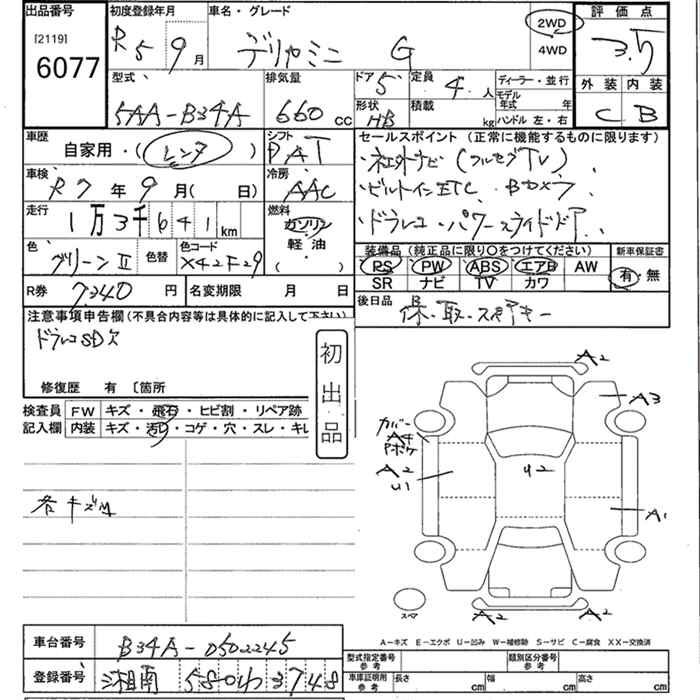 出品番号 [2119] 6077
初度登録年月 R5 9月
車名・グレード デリカミニ G
2WD 4WD
評価点 3.5
外装 内装 C B
型式 5AA-B34A
排気量 660 cc
ドア 5 定員 4人
形状 HB 積載 kg
ディーラー・並行
モデル年式 年
ハンドル 左・右
車歴 自家用・(レンタ)
シフト PAT
車検 R7年9月( 日)
冷房 AAC
走行 1万3千641km
燃料 ガソリン 軽油 ( )
色 グリーンⅡ 色替 色コード X42F29
R券 7340円 名変期限 月 日
セールスポイント(正常に機能するものに限ります)
・社外ナビ(フルセグTV)
・ビルトインETC
・ドラレコ・パワースライドドア
装備品(純正品に限り○をつけてください)
PS PW ABS エアB AW
SR ナビ TV カワ
新車保証書 有・無
後日品 保・取・スペアキー
注意事項申告欄(不具合内容等は具体的に記入して下さい)
ドラレコSD欠
修復歴 有 〔箇所
初出品
検査員記入欄
FW キズ・飛石・ヒビ割・リペア跡
内装 キズ・汚レ・コゲ・穴・スレ・キレ
各キズ凹
A2
A3
カバー
A4
Pボケ
A2
U1
U2
A1
A2
A2
スマ
A-キズ E-エクボ U-凹み W-補修跡 S-サビ C-腐食 XX-交換済
車台番号 B34A-0502245
登録番号 湘南 580 わ 3748
型式指定番号 参考 類別区分番号 参考
車庫証明用 参考 長さ cm 幅 cm 高さ cm